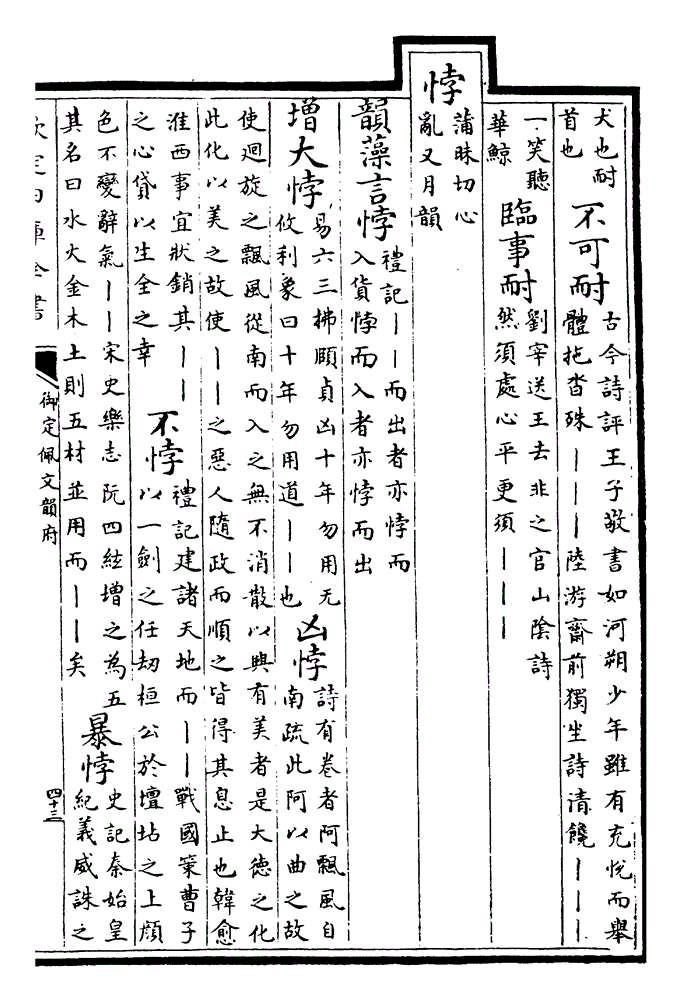 犬也耐
首也
不可耐
古今詩評王子敬書如河朔少年雖有充悦而舉
體拖沓殊｜｜｜陸游齋前獨坐詩清饞｜｜｜
一笑聽
華鯨
臨事耐
劉宰送王去非之官山陰詩
然須處心平更須｜｜｜
悖
蒲昧切心
亂又月韻
韻藻言悖
禮記｜｜而出者亦悖而
入貨悖而入者亦悖而出
增大悖
易六三拂頤貞凶十年勿用无
攸利象曰十年勿用道｜｜也
凶悖
詩有卷者阿飄風自
南疏此阿以曲之故
使迴旋之飄風從南而入之無不消散以興有美者是大德之化
此化以美之故使｜｜之惡人隨政而順之皆得其息止也韓愈
淮西事宜狀銷其｜｜
之心貸以生全之幸
不悖
禮記建諸天地而｜｜戰國策曹子
以一劍之任劫桓公於壇坫之上顔
色不變辭氣｜｜宋史樂志阮四絃增之為五
其名曰水火金木土則五材並用而｜｜矣
暴悖
史記秦始皇
紀義威誅之
欽定四庫全書
御定佩文韻府
四十三